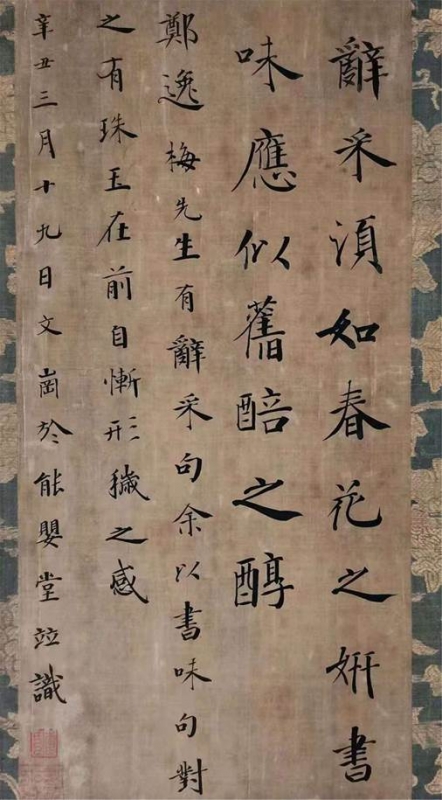 辭采須如春花之妍書
味應似舊醅之醇
鄭逸梅先生有辭采句余以書味句對
之有珠玉在前自慚形穢之感
辛丑三月十九日文崗於能嬰堂竝識